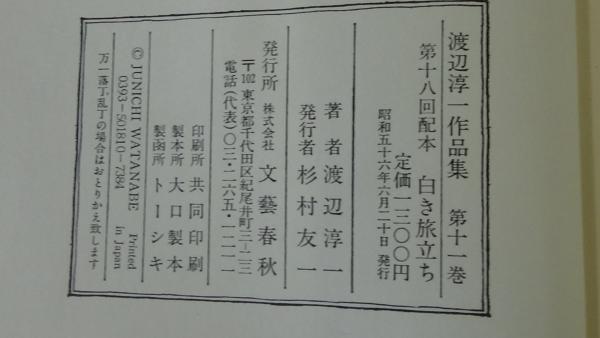 渡辺淳一作品集　第十一巻
第十八回配本　白き旅立ち
定価一三〇〇円
昭和五十六年六月二十日　発行
著者　渡辺淳一
発行者　杉村友一
発行所　株式会社　文藝春秋
〒102 東京都千代田区紀尾井町三—二三
電話(代表)〇三・二六五・一二一一
印刷所　共同印刷
製本所　大口製本
製函所　トーシキ
© JUNICHI WATANABE　Printed in Japan
0393-501810-7384
万一落丁乱丁の場合はおとりかえ致します